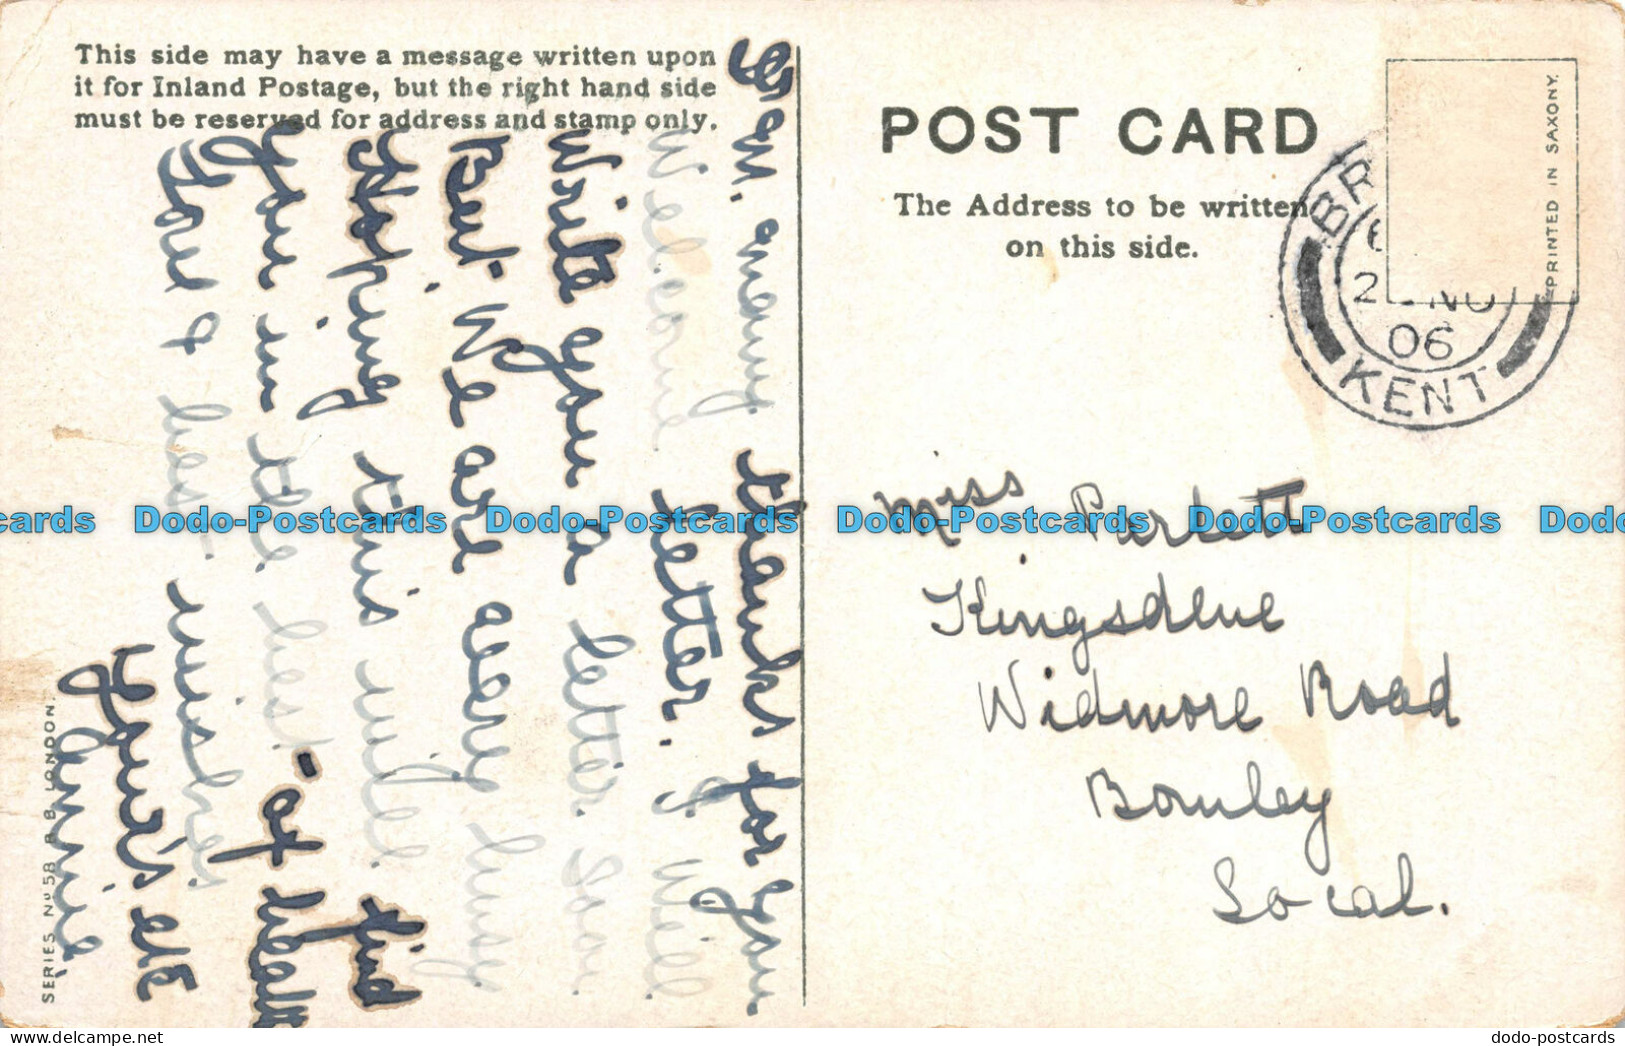 This side may have a message written upon
it for Inland Postage, but the right hand side
must be reserved for address and stamp only.
POST CARD
The Address to be written
on this side.
PRINTED IN SAXONY.
BR
2 NO
06
KENT
many thanks for your
Welcome letter. I will
Write you a letter soon
But We are very busy
Hoping this will find
you in the best of health
Love & best wishes
Your's etc
Annie
Miss Parkett
Kingsdene
Widmore Road
Bromley
Local.
SERIES No 58 B. B. LONDON.
Dodo-Postcards Dodo-Postcards Dodo-Postcards Dodo-Postcards
dodo-postcards